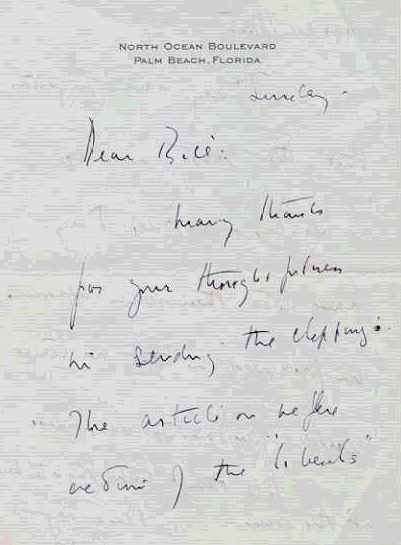 NORTH OCEAN BOULEVARD
PALM BEACH, FLORIDA
Sunday -
Dear Bill:
Many thanks
for your thoughtfulness
in sending the clippings.
The article on
of the "liberals"